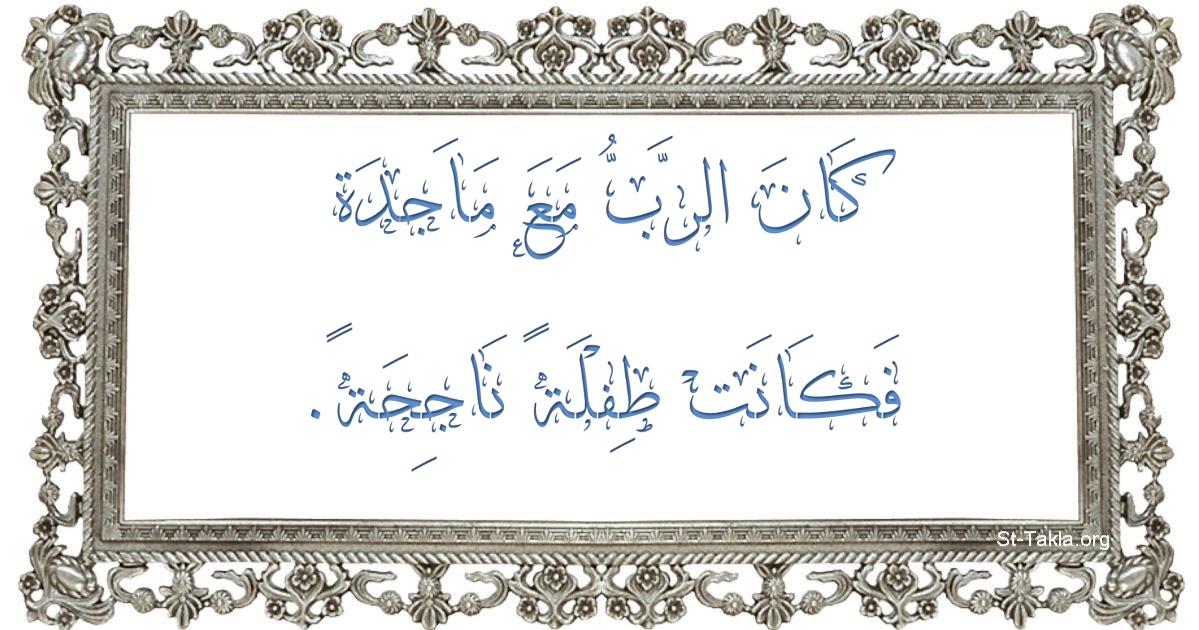 كَانَ الرَّبُّ مَعَ مَاَجِدَة
فَكَانَت طِفْلَةً نَاجِحَةً.
St-Takla.org